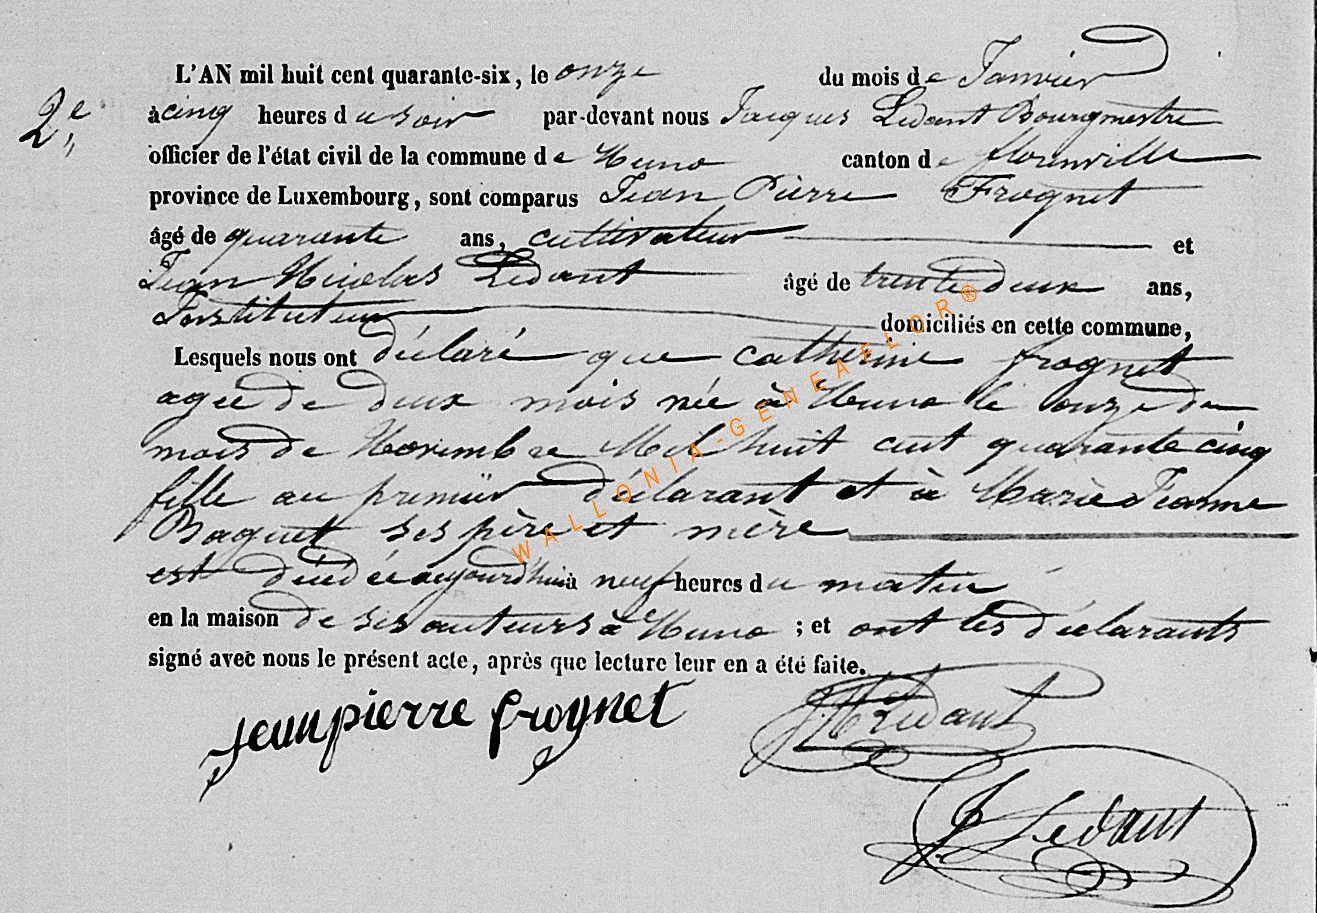 L'AN mil huit cent quarante-six, le onze du mois de Janvier
2e
à cinq heures du soir par-devant nous Jacques Ledant Bourgmestre
officier de l'état civil de la commune de Muno canton de florenville
province de Luxembourg, sont comparus Jean Pièrre Frognet
âgé de quarante ans, cultivateur et
Jean Nicolas Ledant âgé de trente deux ans,
Instituteur domiciliés en cette commune,
Lesquels nous ont déclaré que catherine frognet
agée de deux mois née à Muno le onze du
mois de Novembre Mil huit cent quarante cinq
fille au premier déclarant et à Marie Jeanne
Baquet ses père et mère
est décédée aujourd'hui à neuf heures du matin
en la maison de ses auteurs à Muno ; et ont les déclarants
signé avec nous le présent acte, après que lecture leur en a été faite.
jean pierre frognet
JN Ledant
J Ledant
WALLONIA-GENEAFLOR®